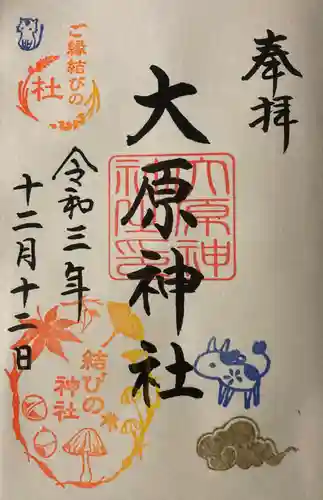 奉拝
大原神社
大原神社之印
令和三年
十二月十二日
ご縁結びの
杜
結びの
神社